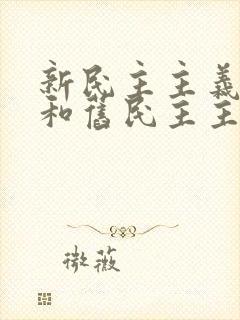 新民主主義
和舊民主主
微薇